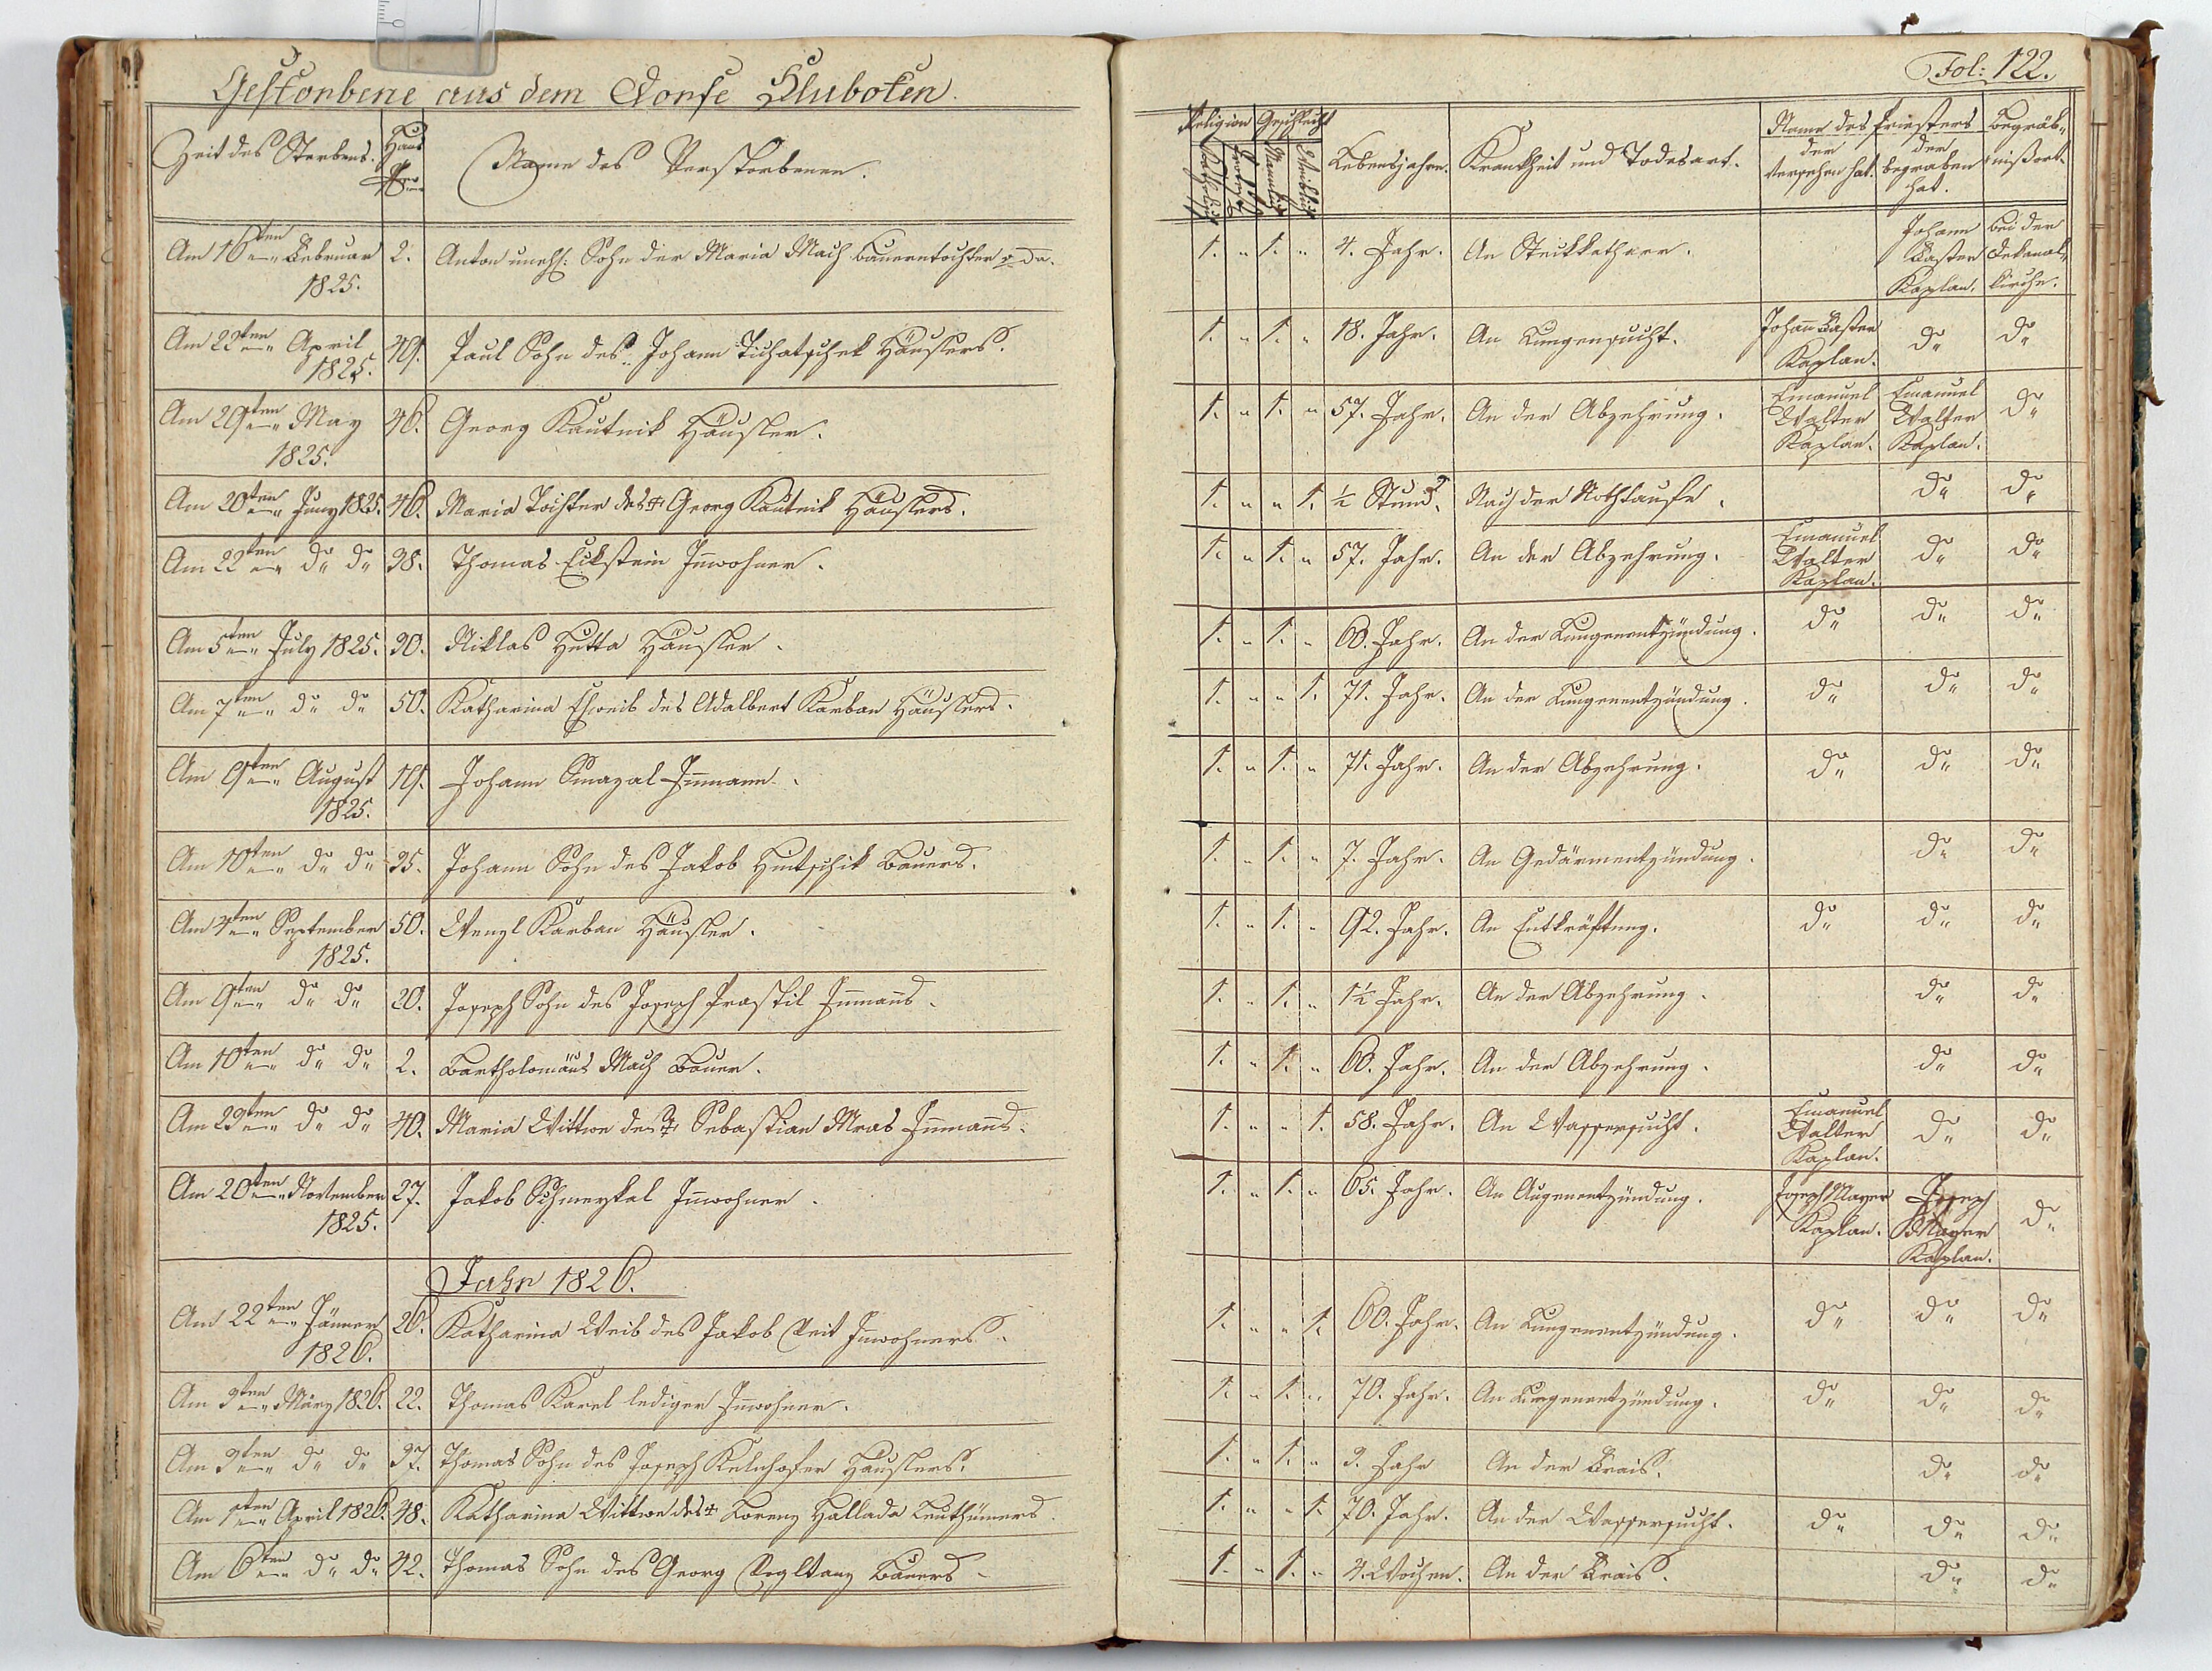 Gestorbene aus dem Dorfe Hluboken.
Fol: 122.
Zeit des Sterbens. Haus Nro Name des Verstorbenen.
Religion Geschlecht Lebensjahre. Krankheit und Todesart. Name des Priesters Begräb-
der der
versehen hat. begraben nißort.
hat.
Am 16ten Februar 2. Anton unehl: Sohn der Maria Mach Bauerntochter
1825.
1. " 1. " 4. Jahr. An Steckkatharr. Johann bei der
Kaplan. kirche.
Am 22ten April Paul Sohn des Johann Tichatschek Häuslers.
1825.
1. " 1. " 18. Jahr. An Lungensucht. Johann
Kaplan. do do
Am 29ten May 46. Georg Kautnik Häusler.
1825.
1. " 1. " 57. Jahr. An der Abzehrung. Emanuel Emanuel do
Walter Walter
Kaplan. Kaplan.
Am 20ten Juny 1825. 46. Maria Tochter des + Georg Kautnik Häuslers.
1. " " 1. ½ Stund. Nach der Nothtaufe. do do
Am 22ten do do 38. Thomas Eckstein Inwohner.
1. " 1. " 57. Jahr. An der Abzehrung. Emanuel do do
Walter
Kaplan.
Am 5ten July 1825. 30. Niklas Hutta Häusler.
1. " 1. " 60. Jahr. An der Lungenentzündung. do do do
Am 7ten do do 50. Katharina Eheweib des Adalbert Karban Häuslers.
1. " " 1. 71. Jahr. An der Lungenentzündung. do do do
Am 9ten August 19. Johann Smazal Inmann.
1825.
1. " 1. " 71. Jahr. An der Abzehrung. do do do
Am 10ten do do 35. Johann Sohn des Jakob Hintschik Bauers.
1. " 1. " 7. Jahr. An Gedärmentzündung. do do
Am 4ten September 50. Wenzl Karban Häusler.
1825.
1. " 1. " 92. Jahr. An Entkräftung. do do do
Am 9ten do do 20. Joseph Sohn des Joseph Prastil Inmanns.
1. " 1. " 1½ Jahr. An der Abzehrung. do do
Am 10ten do do 2. Bartholomäus Mach Bauer.
1. " 1. " 60. Jahr. An der Abzehrung. do do
Am 23ten do do 40. Maria Wittwe des + Sebastian Mras Inmanns.
1. " " 1. 58. Jahr. An Wassersucht. Emanuel do do
Walter
Kaplan.
Am 20ten November 27. Jakob Schmeykal Inwohner.
1825.
1. " 1. " 65. Jahr. An Augenentzündung. Joseph Mayer Joseph do
Kaplan. Mayer
Kaplan.
Jahr 1826.
Am 22ten Jänner 26. Katharina Weib des Jakob Veit Inwohners.
1826.
1. " " 1. 60. Jahr. An Lungenentzündung. do do do
Am 3ten März 1826. 22. Thomas Karel lediger Inwohner.
1. " 1. " 70. Jahr. An Lungenentzündung. do do do
Am 9ten do do 37. Thomas Sohn des Joseph Kelnhofer Häuslers.
1. " 1. " 3. Jahr An der Frais. do do
Am 1ten April 1826. 48. Katharina Wittwe des + Lorenz Hallada
1. " " 1. 70. Jahr. An der Wassersucht. do do do
Am 6ten do do 42. Thomas Sohn des Georg Bauers
1. " 1. " 4. Wochen. An der Frais. do do